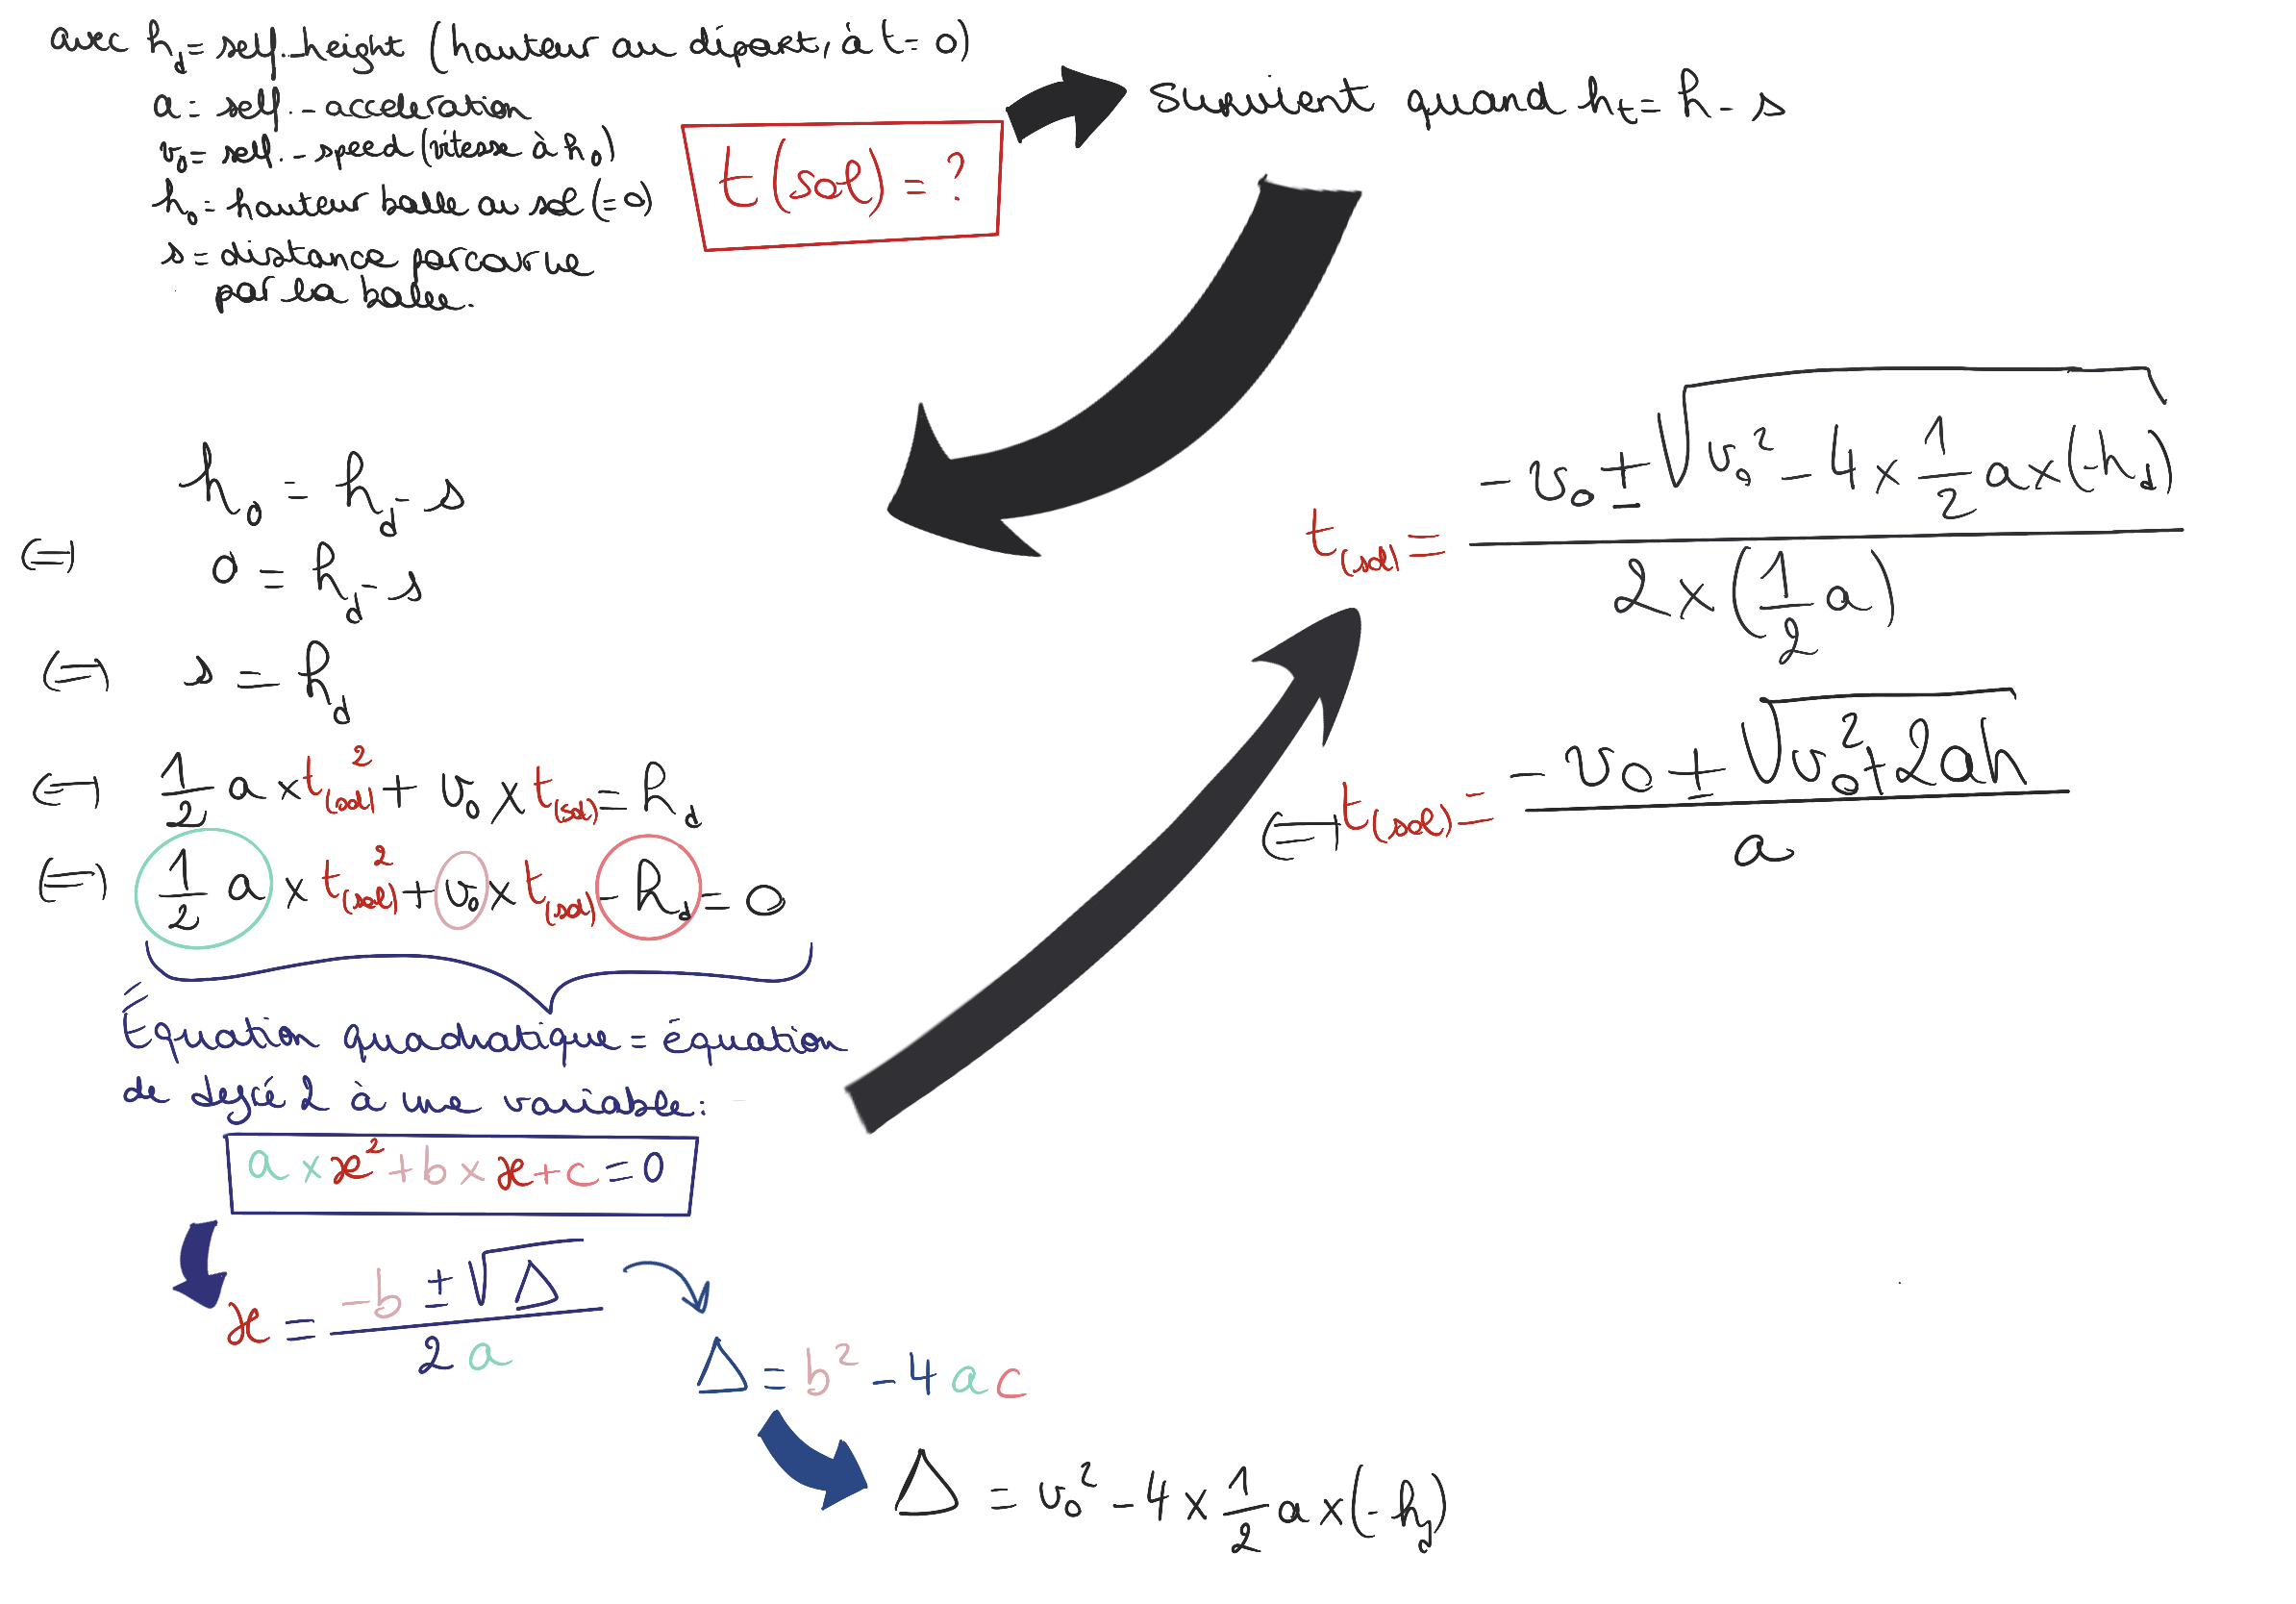 avec h_d = self._height (hauteur au départ, à t = 0)
a = self._acceleration
v₀ = self._speed (vitesse à h₀)
h₀ = hauteur balle au sol (= 0)
s = distance parcourue
par la balle.
t(sol) = ?
survient quand h_t = h - s
h₀ = h_d - s
(=) 0 = h_d - s
(=) s = h_d
(=) 1/2 a × t(sol)² + v₀ × t(sol) = h_d
(=) 1/2 a × t(sol)² + v₀ × t(sol) - h_d = 0
Équation quadratique = équation
de degré 2 à une variable :
a × x² + b × x + c = 0
x = (-b ± √Δ) / 2a
Δ = b² - 4ac
Δ = v₀² - 4 × 1/2 a × (-h_d)
t(sol) = (-v₀ ± √(v₀² - 4 × 1/2 a × (-h_d))) / (2 × (1/2 a))
(=) t(sol) = (-v₀ ± √(v₀² + 2ah)) / a